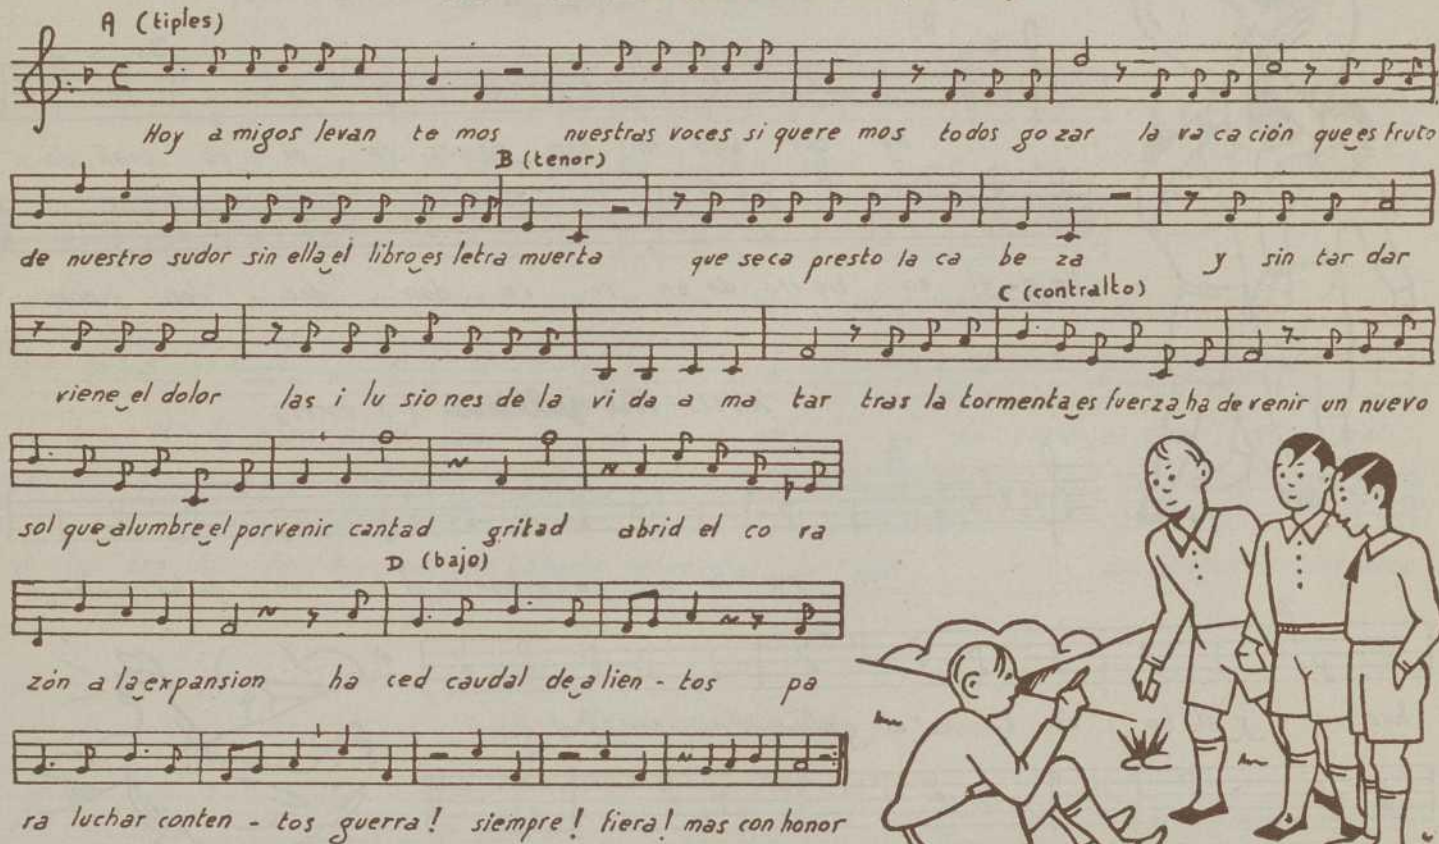 A (tiples)
Hoy a migos levan te mos nuestras voces si quere mos todos go zar la va ca ción que es fruto
B (tenor)
de nuestro sudor sin ella el libro es letra muerta que seca presto la ca be za y sin tar dar
C (contralto)
viene el dolor las i lu sio nes de la vi da a ma tar tras la tormenta es fuerza ha de venir un nuevo
sol que alumbre el porvenir cantad gritad abrid el co ra
D (bajo)
zón a la expansion ha ced caudal de a lien - tos pa
ra luchar conten - tos guerra! siempre! fiera! mas con honor